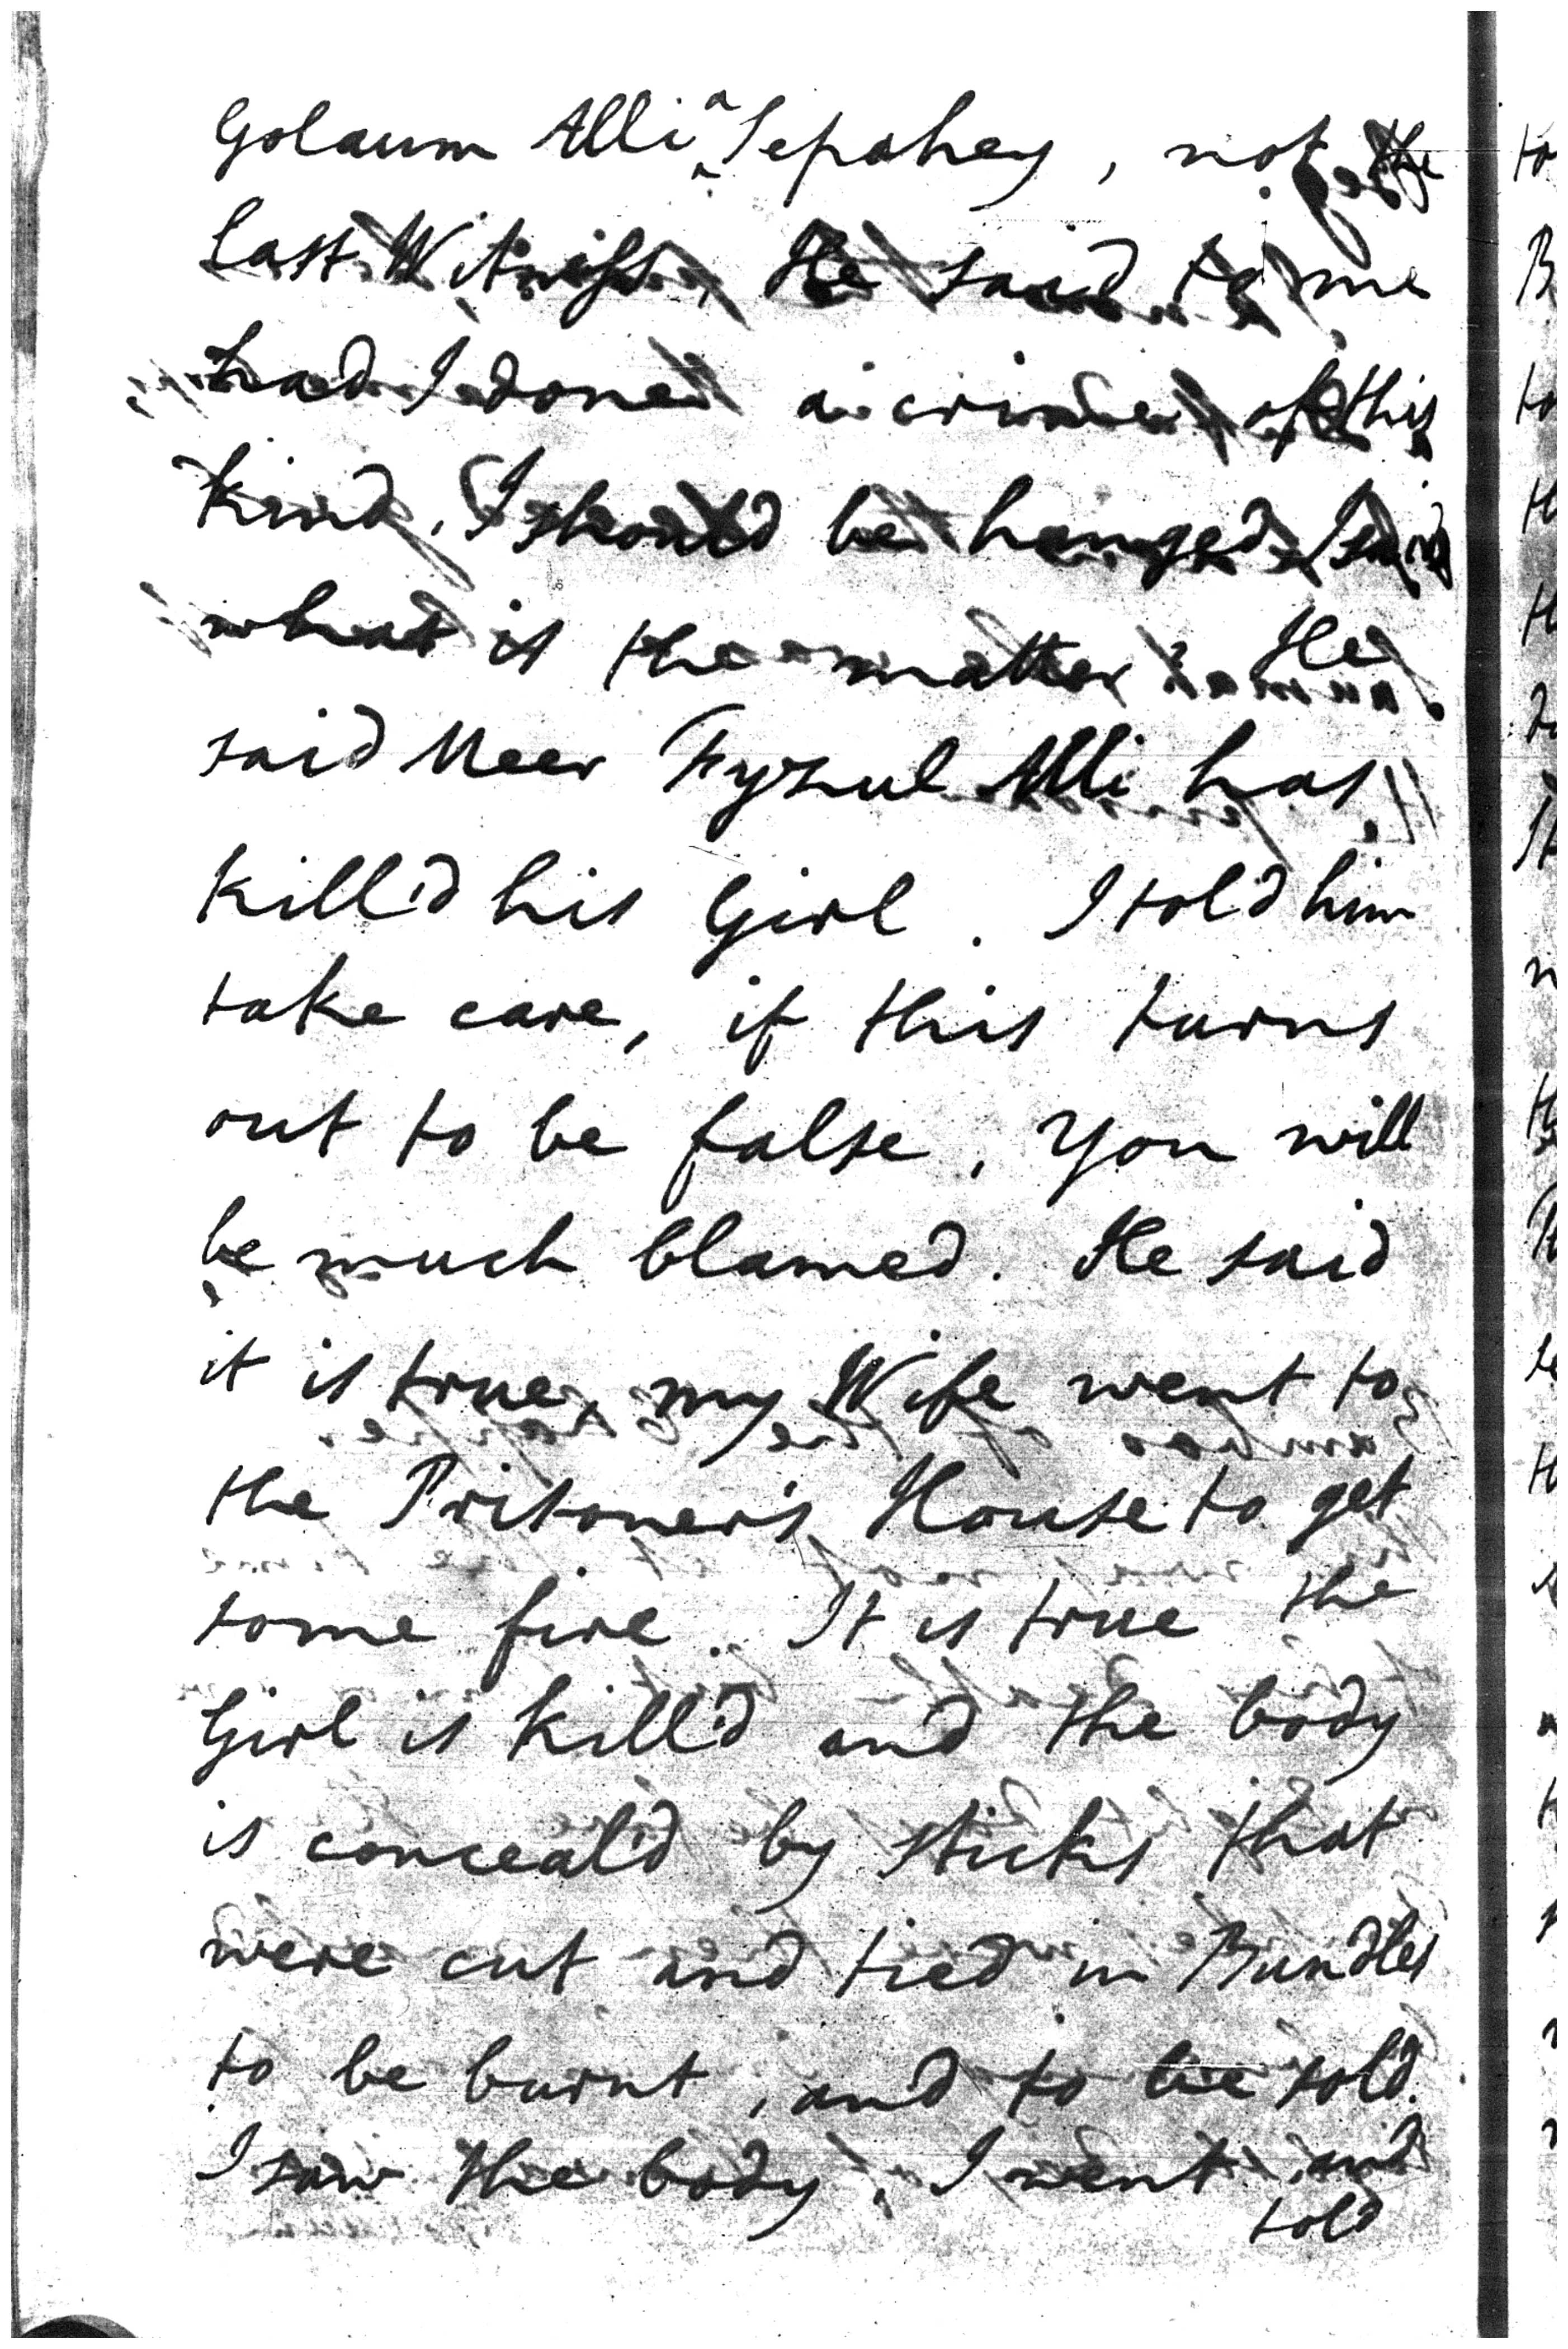 Golaum Alli a Sepahey, not the
last Witness, He said to me
had I done a crime of this
kind, I should be hanged. I said
what is the matter? He
said Meer Fyzul Alli has
kill'd his Girl. I told him
take care, if this turns
out to be false, You will
be much blamed. He said
it is true, my Wife went to
the Prisoner's House to get
some fire. It is true the
Girl is kill'd and the body
is conceal'd by sticks that
were cut and tied in Bundles
to be burnt, and to be sold.
I saw the body, I went and
told